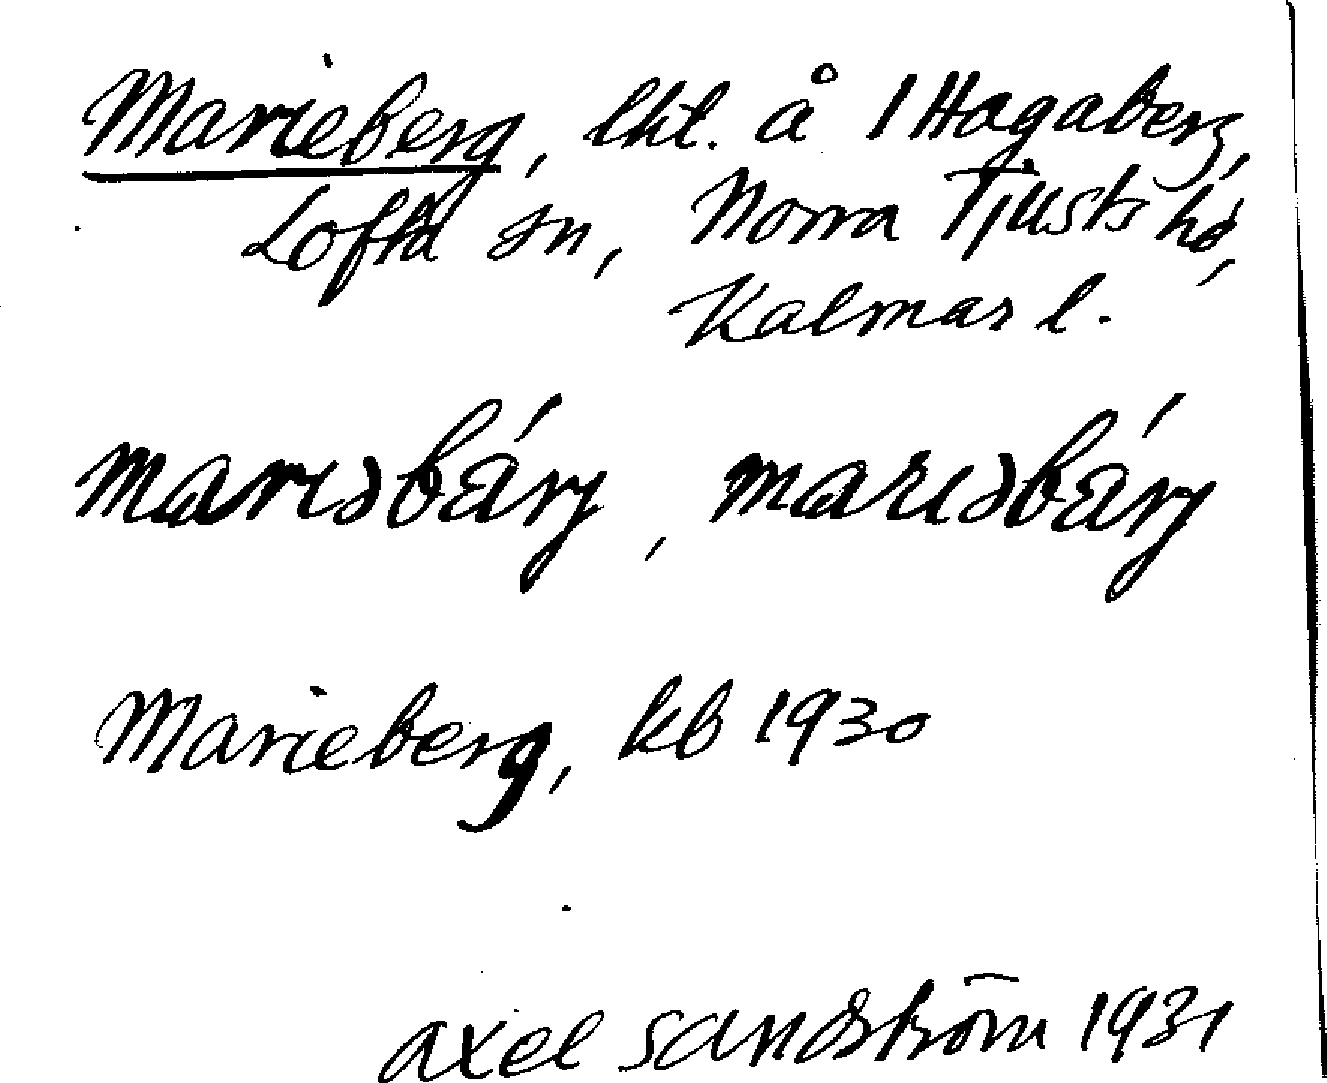 Marieberg, lht. å 1 Hagaberg,
Lofta sn, Norra Tjusts hd,
Kalmar l.
marıəbáry, marıəbáry
Marieberg, kb 1930
Axel Sandström 1931